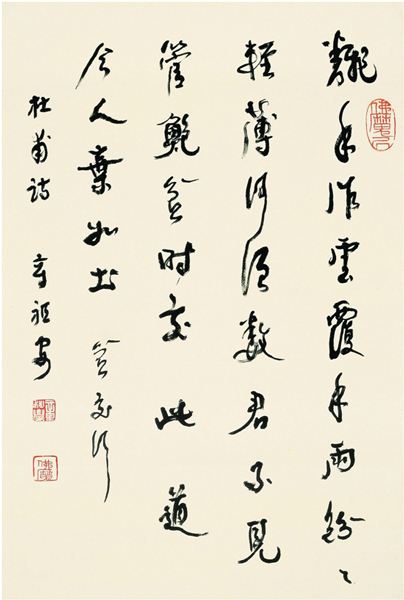 翻手作雲覆手雨紛々
輕薄何須數君不見
管鮑貧時交此道
今人棄如土 貧交行
杜甫詩 章祖安